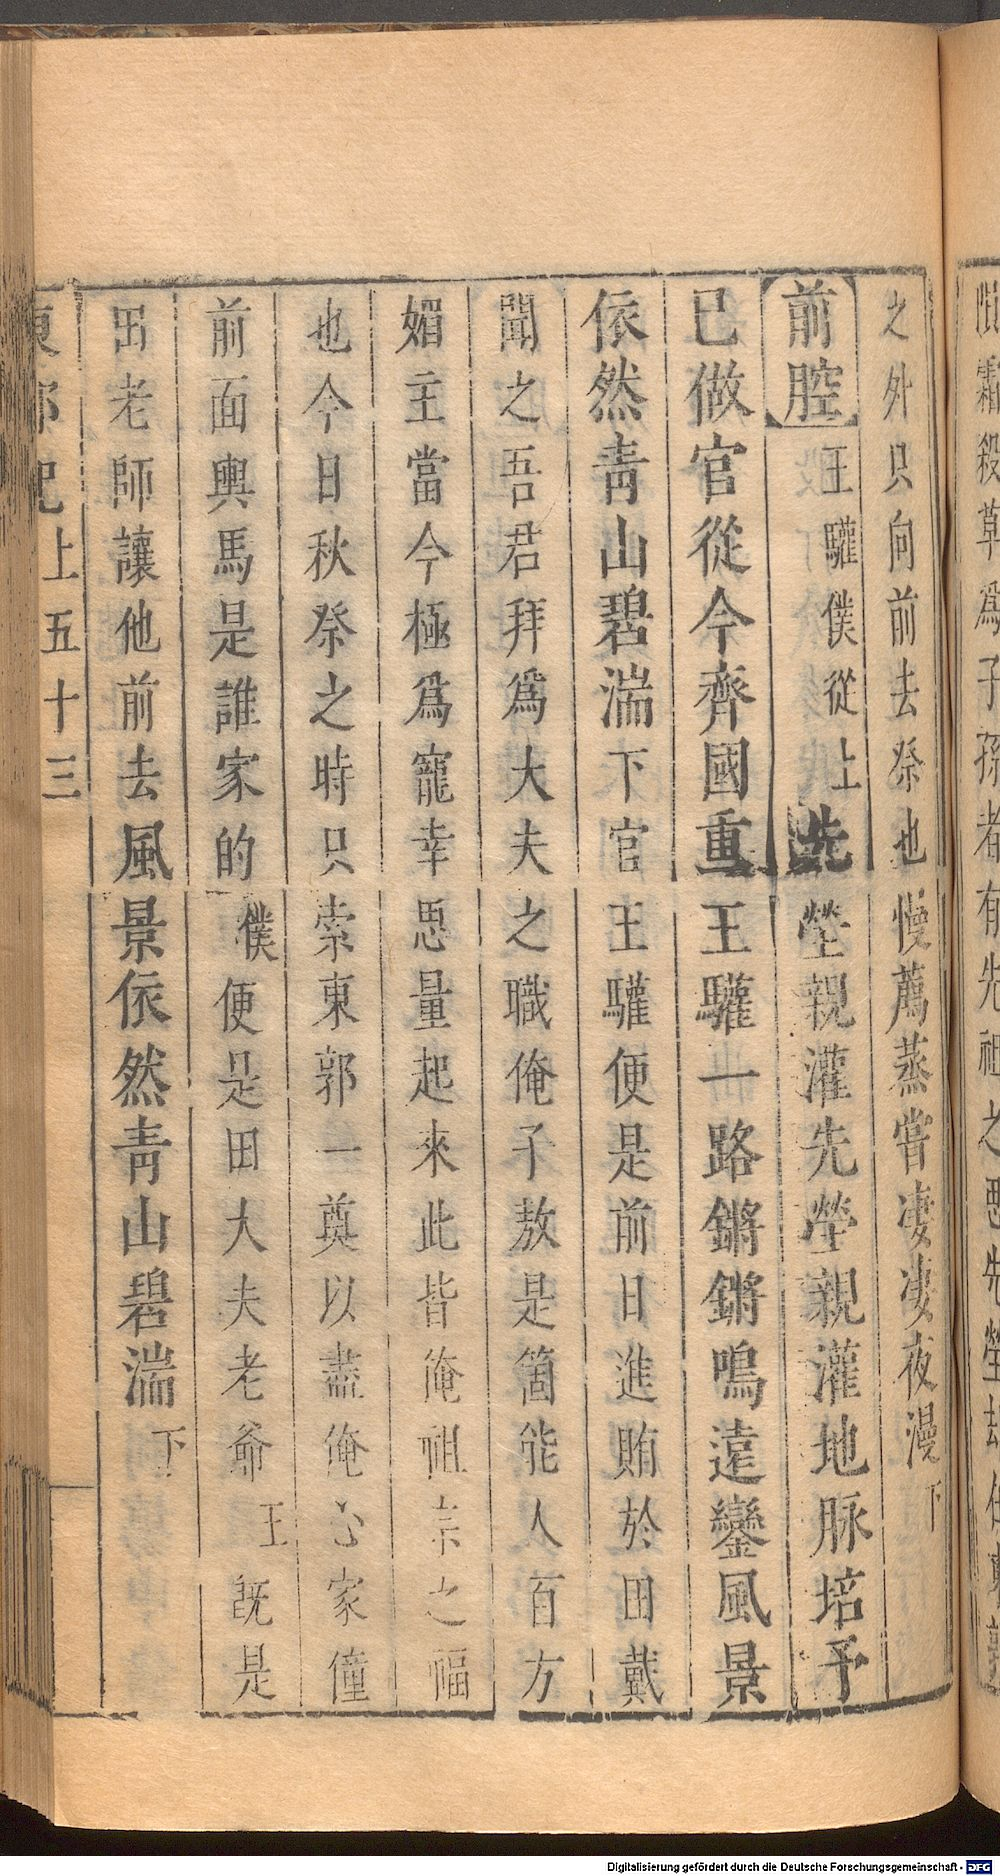 限霜殺草爲子孫者有先祖之
之外只向前去祭也慢薦蒸嘗凄凄夜漫下
前腔王驩僕從上先塋親灌先塋親灌地脉培予
已做官從今齊國重王驩一路鏘鏘鳴遠鑾風景
依然靑山碧湍下官王驩便是前日進賄於田戴
聞之吾君拜爲大夫之職俺子敖是箇能人百方
媚主當今極爲寵幸思量起來此皆俺祖宗之福
也今日秋祭之時只索東郭一奠以盡俺心家僮
前面輿馬是誰家的僕便是田大夫老爺王既是
田老師讓他前去風景依然靑山碧湍下
東郭記上五十三
Digitalisierung gefördert durch die Deutsche Forschungsgemeinschaft - DFG